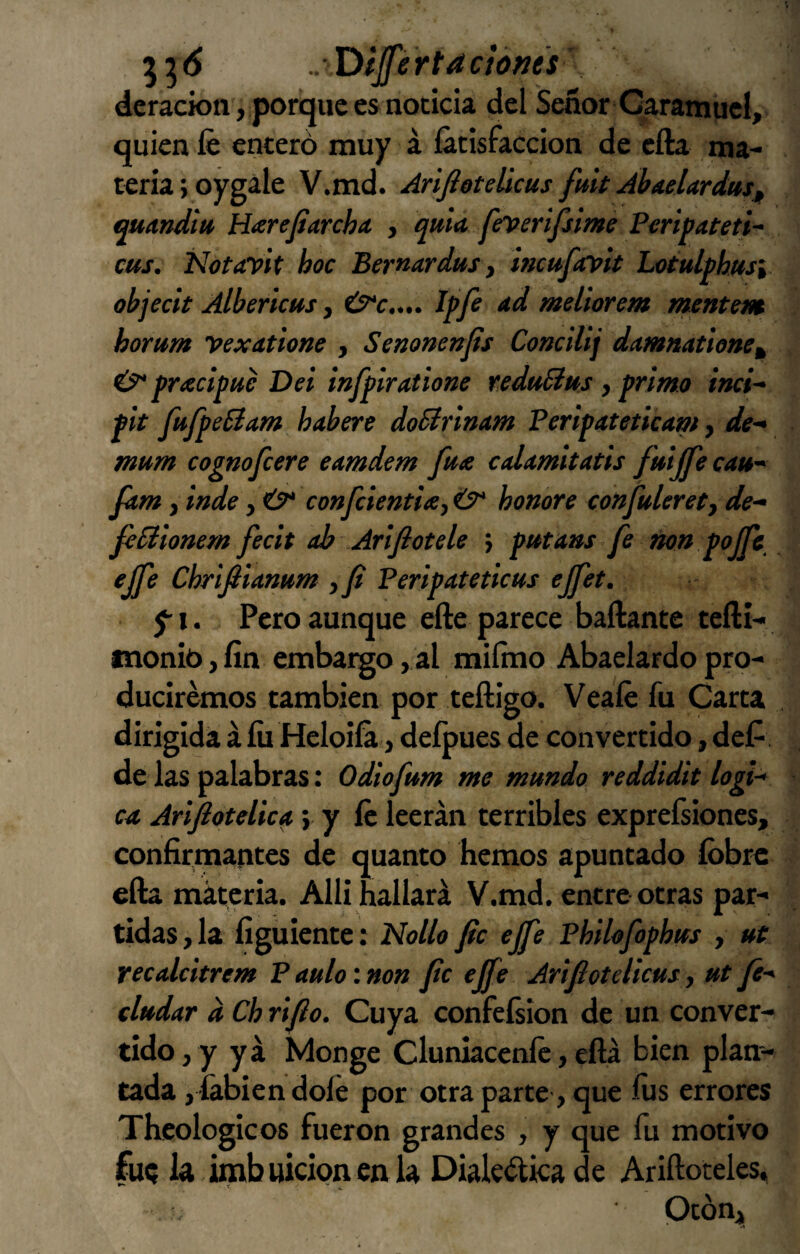 336 Dissertaciones
deracion, porque es noticia del Señor Caramuel,
quien ſe enterò muy à ſatisfaccion de eſta ma-
teria; oygale V.md. Ariſtotelicus fuit Abaelardus,
quandiu Hæreſiarcha , quia ſeveriſsime Peripateti-
cus. Notavit hoc Bernardus, incuſavit Lotulphus;
objecit Albericus, &c.... Ipſe ad meliorem mentem
horum vexatione , Senonenſis Concilij damnatione,
& præcipuè Dei inſpiratione reductus , primo inci-
pit ſuſpectam habere doctrinam Peripateticam, de-
mum cognoſcere eamdem ſuæ calamitatis fuiſſe cau-
ſam , inde , & conſcientiæ, & honore conſuleret, de-
fectionem fecit ab Ariſtotele ; putans ſe non poſſe
eſſe Chriſtianum , ſi Peripateticus eſſet.
51. Pero aunque eſte parece baſtante teſti-
monio, ſin embargo, al miſmo Abaelardo pro-
ducirèmos tambien por teſtigo. Veaſe ſu Carta
dirigida à ſu Heloiſa, deſpues de convertido, deſ-
de las palabras: Odioſum me mundo reddidit logi-
ca Ariſtotelica ; y ſe leeràn terribles expreſsiones,
confirmantes de quanto hemos apuntado ſobre
eſta materia. Alli hallarà V.md. entre otras par-
tidas, la ſiguiente: Nollo ſic eſſe Philoſophus , ut
recalcitrem Paulo: non ſic eſſe Ariſtotelicus, ut ſe-
cludar à Chriſto. Cuya confeſsion de un conver-
tido, y yà Monge Cluniacenſe, eſtà bien plan-
tada, ſabiendoſe por otra parte, que ſus errores
Theologicos fueron grandes , y que ſu motivo
fue la imbuicion en la Dialectica de Ariſtoteles.
Otòn,